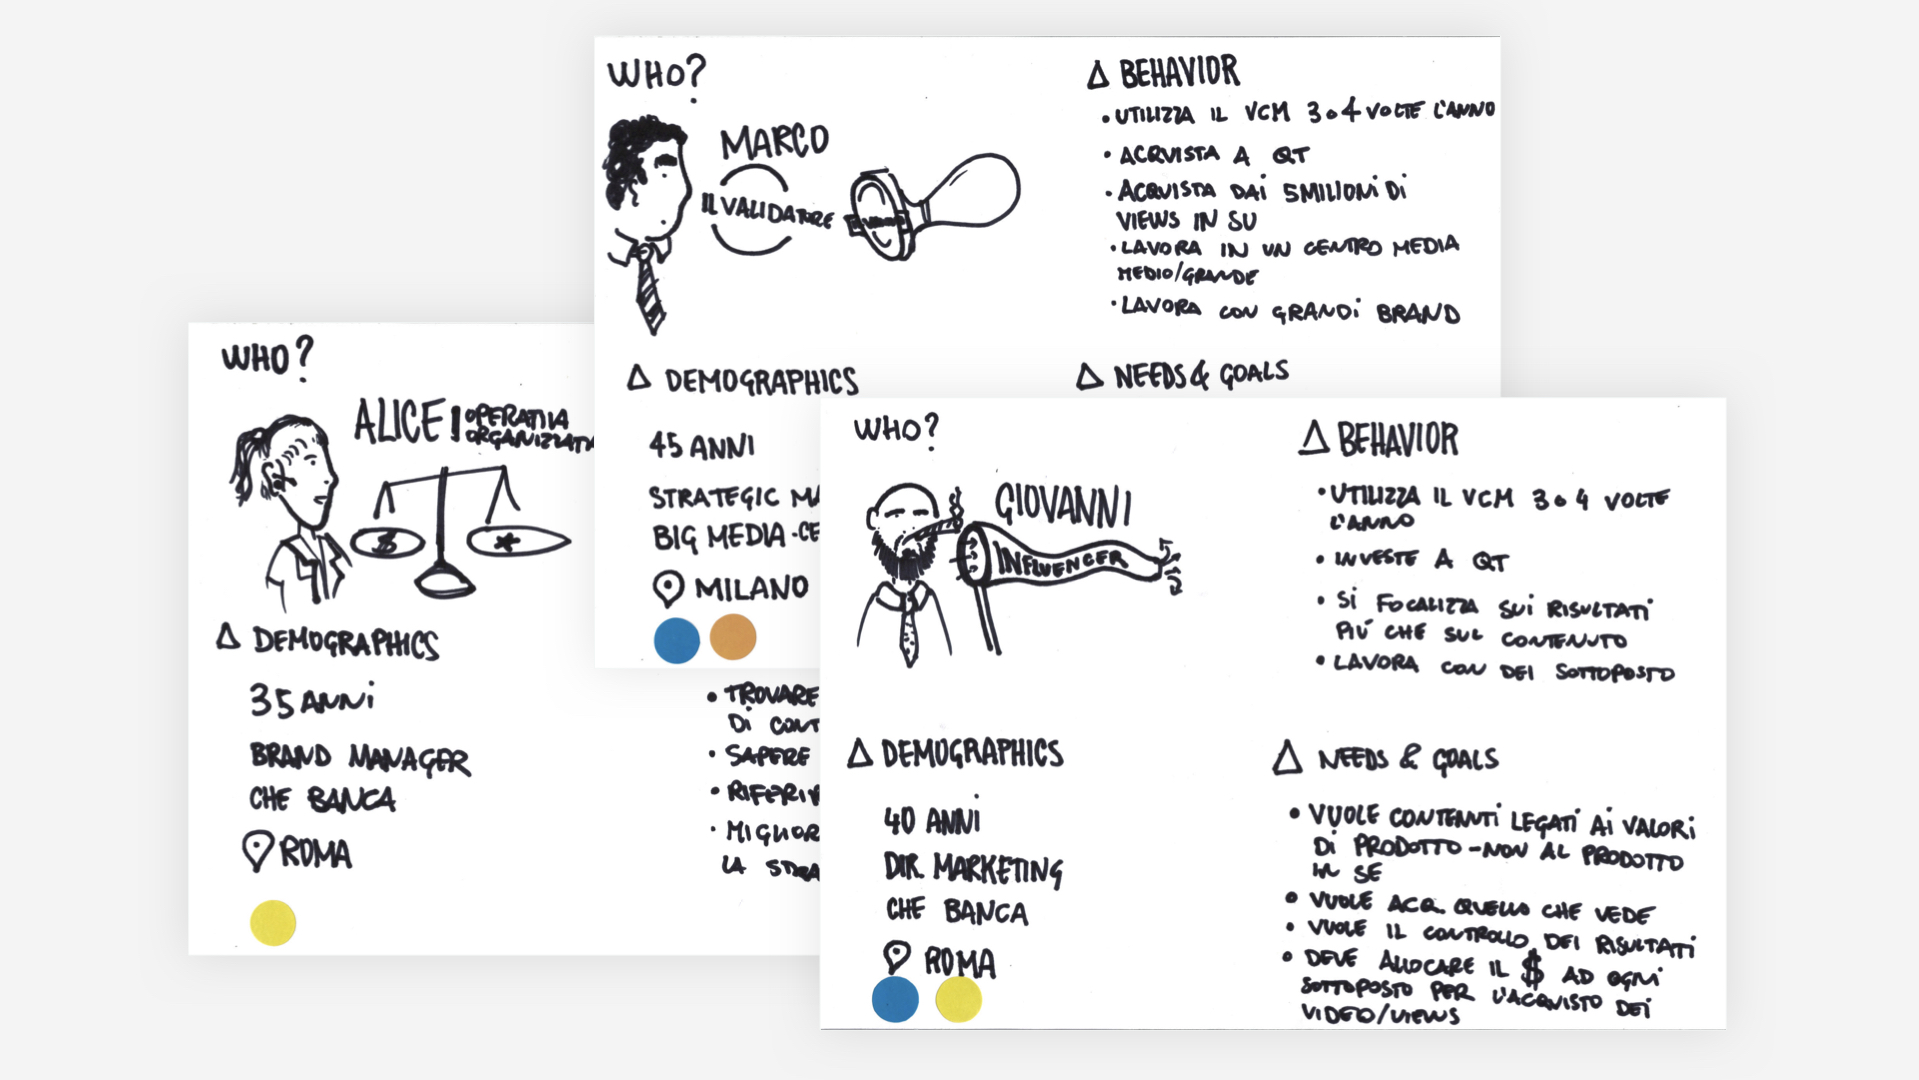 WHO?
MARCO
IL VALIDATORE
Δ BEHAVIOR
• UTILIZZA IL VCM 3 o 4 VOLTE L'ANNO
• ACQUISTA A QT
• ACQUISTA DAI 5MILIONI DI
VIEWS IN SU
• LAVORA IN UN CENTRO MEDIA
MEDIO/GRANDE
• LAVORA CON GRANDI BRAND
Δ DEMOGRAPHICS
45 ANNI
STRATEGIC MA
BIG MEDIA-CE
MILANO
Δ NEEDS & GOALS
WHO?
ALICE
OPERATIVA
ORGANIZZATA
$ *
Δ DEMOGRAPHICS
35 ANNI
BRAND MANAGER
CHE BANCA
ROMA
• TROVARE
DI CONT
• SAPERE
• RIFERIR
• MIGLIOR
LA STRA
WHO?
GIOVANNI
INFLUENCER
Δ BEHAVIOR
• UTILIZZA IL VCM 3 o 4 VOLTE
L'ANNO
• INVESTE A QT
• SI FOCALIZZA SUI RISULTATI
PIÚ CHE SUL CONTENUTO
• LAVORA CON DEI SOTTOPOSTO
Δ DEMOGRAPHICS
40 ANNI
DIR. MARKETING
CHE BANCA
ROMA
Δ NEEDS & GOALS
• VUOLE CONTENUTI LEGATI AI VALORI
DI PRODOTTO - NON AL PRODOTTO
IN SE
• VUOLE ACQ. QUELLO CHE VEDE
• VUOLE IL CONTROLLO DEI RISULTATI
• DEVE ALLOCARE IL $ AD OGNI
SOTTOPOSTO PER L'ACQUISTO DEI
VIDEO/VIEWS